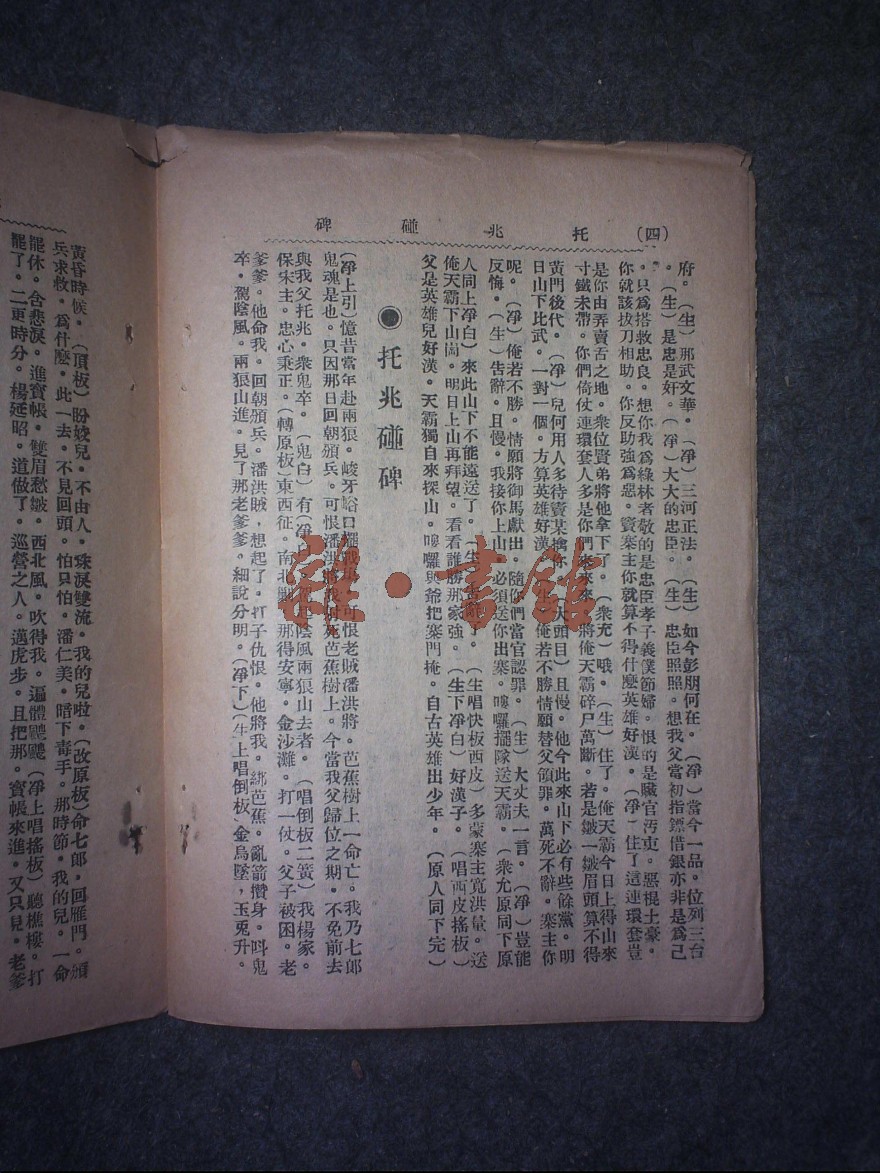 (四) 托兆碰碑
府。(生)那武文華。(凈)三河正法。(生)如今彭朋何在。(凈)當今一品。位列三台
。(生)是忠是奸。(凈)大大的忠臣。(生)忠臣照照。想我父當初指鏢借銀亦非是爲己
。只爲搭救忠良。想你我爲綠林者敬的是忠臣孝子義僕節婦。恨的是贓官污吏。惡棍土豪。
你就該拔刀相助。你反助強爲惡。竇寨主你就算不得什麼英雄好漢。(凈)住了這連環套豈
是你由弄賣舌之地。衆位賢弟將他拿下了。(衆允)哦。(生)住了。俺天霸今日上得山來
寸鐵未帶。你們倚仗連環套人多是你們來來來將俺天霸碎尸萬斷。若是皺一皺眉頭算不得
黃門後代。(凈)兒何用人多待竇某擒你。(大頭目)且慢。他今此來山下必有些餘黨。明
日山下比武。一對一個。方算英雄好漢。(生)俺若不勝情願替父領罪。萬死不辭。寨主你
呢。(凈)俺若不勝。情願將御馬獻出。隨你們當官認罪。(生)大丈夫一言。(凈)豈能
反悔。(生)告辭。且慢。我接你上山。必須送你出寨。嘍囉擺隊送天霸。(衆允原同下原
人同上凈白)來此山下不能遠送了。(生)告辭了。(生唱快板西皮)多蒙寨主寬洪量。送
俺天霸下山崗。明日上山再拜望。看看誰勝那家強。(生下凈白)好漢子。(唱西皮搖板)
父是英雄兒好漢。天霸獨自來探山。嘍囉與爺把寨門掩。自古英雄出少年。(原人同下完)
●托兆碰碑
(凈上引)憶昔當年赴兩狼。峻牙峪口擺戰 可恨老賊潘洪將。芭蕉樹上一命亡。我乃七郎
鬼魂是也。只因那日回朝頒兵。可恨潘洪將我射死芭蕉樹上。今當我父歸位之期。不免前去
與我父托兆。衆鬼卒。(鬼白)有(凈 駕 陰風兩狼山去者。(唱倒板二簧)我楊家。
保宋主。忠心秉正。(轉原板)東西征。南北剿。那得安寧。金沙灘。打一仗。父子被困。老
爹爹。他命我。回朝頒兵。潘洪賊。想起了。打子仇恨。他將我。綁芭蕉。亂箭攢身。叫鬼
卒。駕陰風。兩狼山進。見了那老爹爹。細說分明。(凈下)(生上唱倒板)金烏墜。玉兎升。
黃昏時候。(頂板)盼姣兒。不由人。珠淚雙流。我的兒啦。(改原板)命七郎。回雁門。頒
兵求救。爲什麼。此一去。不見回頭。怕只怕。潘仁美。暗下毒手。那時節。我的兒。一命
罷休。含悲淚。進寶帳。雙眉愁皺。西北風。吹得我。遍體颼颼。(凈上唱搖板)聽樵樓。打
罷了。二更時分。楊延昭。道做了。巡營之人。邁虎步。且把那。寶帳來進。又只見。老爹
雜·書館